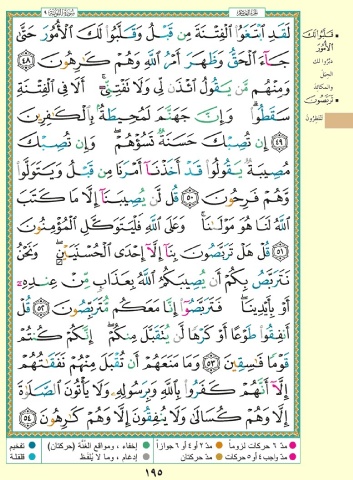 سورة التوبة ٩
الجزء العاشر
لَقَدِ ٱبْتَغَوُا۟ ٱلْفِتْنَةَ مِن قَبْلُ وَقَلَّبُوا۟ لَكَ ٱلْأُمُورَ حَتَّىٰ
جَآءَ ٱلْحَقُّ وَظَهَرَ أَمْرُ ٱللَّهِ وَهُمْ كَٰرِهُونَ ٤٨
وَمِنْهُم مَّن يَقُولُ ٱئْذَن لِّى وَلَا تَفْتِنِّىٓ ۚ أَلَا فِى ٱلْفِتْنَةِ
سَقَطُوا۟ ۗ وَإِنَّ جَهَنَّمَ لَمُحِيطَةٌۢ بِٱلْكَٰفِرِينَ
٤٩ إِن تُصِبْكَ حَسَنَةٌ تَسُؤْهُمْ ۖ وَإِن تُصِبْكَ
مُصِيبَةٌ يَقُولُوا۟ قَدْ أَخَذْنَآ أَمْرَنَا مِن قَبْلُ وَيَتَوَلَّوا۟
وَّهُمْ فَرِحُونَ ٥٠ قُل لَّن يُصِيبَنَآ إِلَّا مَا كَتَبَ
ٱللَّهُ لَنَا هُوَ مَوْلَىٰنَا ۚ وَعَلَى ٱللَّهِ فَلْيَتَوَكَّلِ ٱلْمُؤْمِنُونَ
٥١ قُلْ هَلْ تَرَبَّصُونَ بِنَآ إِلَّآ إِحْدَى ٱلْحُسْنَيَيْنِ ۖ وَنَحْنُ
نَتَرَبَّصُ بِكُمْ أَن يُصِيبَكُمُ ٱللَّهُ بِعَذَابٍ مِّنْ عِندِهِۦٓ
أَوْ بِأَيْدِينَا ۖ فَتَرَبَّصُوٓا۟ إِنَّا مَعَكُم مُّتَرَبِّصُونَ ٥٢ قُلْ
أَنفِقُوا۟ طَوْعًا أَوْ كَرْهًا لَّن يُتَقَبَّلَ مِنكُمْ ۖ إِنَّكُمْ كُنتُمْ
قَوْمًا فَٰسِقِينَ ٥٣ وَمَا مَنَعَهُمْ أَن تُقْبَلَ مِنْهُمْ نَفَقَٰتُهُمْ
إِلَّآ أَنَّهُمْ كَفَرُوا۟ بِٱللَّهِ وَبِرَسُولِهِۦ وَلَا يَأْتُونَ ٱلصَّلَوٰةَ
إِلَّا وَهُمْ كُسَالَىٰ وَلَا يُنفِقُونَ إِلَّا وَهُمْ كَٰرِهُونَ ٥٤
قلّبوا لك الأمور
دبّروا لك
الحيل
والمكائد
تربصون
تنتظرون
مدّ ٦ حركات لزوماً
مدّ ٢ أو ٤ أو ٦ جوازاً
إخفاء، ومواقع الغُنّة (حركتان)
تفخيم
مدّ واجب ٤ أو ٥ حركات
مدّ حركتان
إدغام، وما لا يُلفَظ
قلقلة
١٩٥